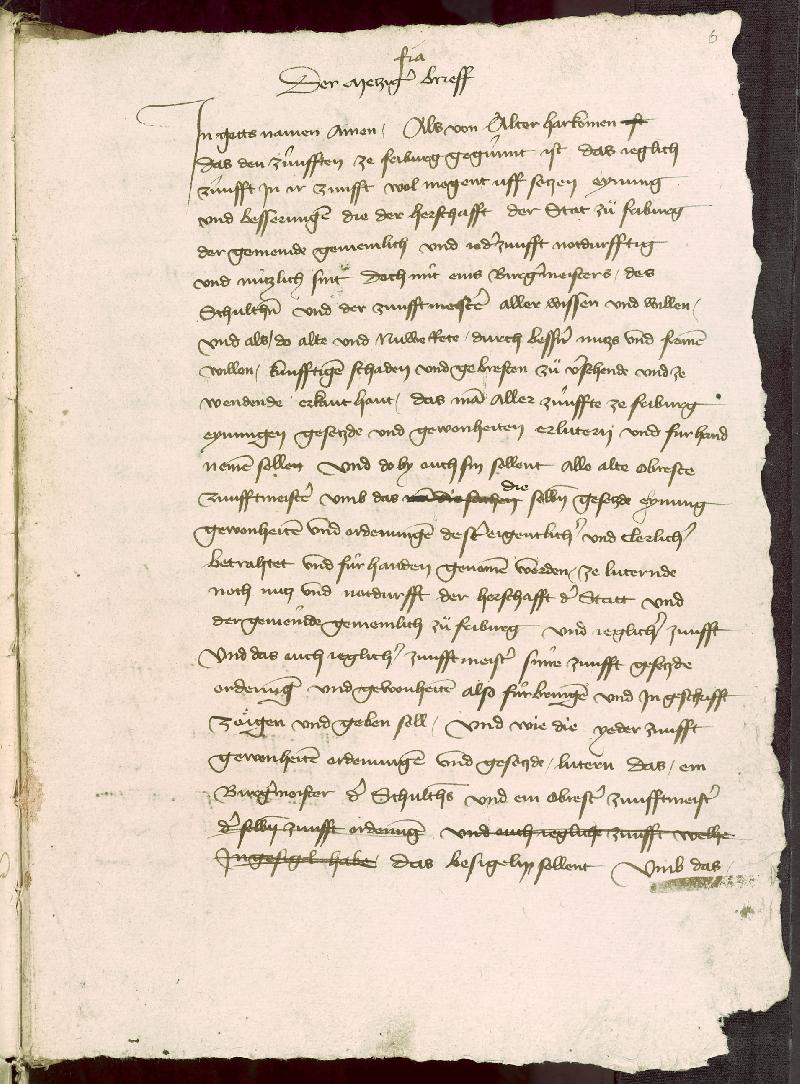 6
fia
Der Metziger brieff
In gotts namen Amen / Als von Alter harkomen
das den zünfften ze friburg gegünnt ist das ieglich
zunfft In ir zunfft wol mogent uff setzen eynung
und besserungen die der herschafft der Stat zü friburg
der gemeinde gemeinlich und ieder zunfft notdurfftig
und nützlich sint doch mit eins Burgermeisters / des
Schulthen und der zunfftmeister aller wissen und willen /
und als / do alte und Nuwe Rete / durch bessern nutz und fromen
willen / künfftigen schaden und gebresten zü versehende und ze
wendende erkant hant / das man aller zünffte ze friburg
eynungen gesetzde und gewonheiten erlutern und fürhand
nemen sollen Und do by ouch sin sollent alle alte obreste
zunfftmeister umb das die selben gesetzde eynung
gewonheiten und ordenungen dester eigentlicher und clerlicher
betrahtet und für handen genomen werden / ze luternde
noch nutz und notdurfft der herschafft der Statt und
der gemeinde gemeinlich zü friburg und ieglicher zunfft
Und das ouch ieglicher zunfftmeister siner zunfft gesetzde
ordenung und gewonheiten also fürbringen und In geschrifft
zöigen und geben soll / Und wie die yeder zunfft
gewonheiten ordenungen und gesetzde / lutern das / ein
Burgermeister der Schulthes und ein obrester zunfftmeister
der selben zunfft ordenung und ouch iegliche zunfft welhe
Ingesigel habe das besigeln sollent Umb das /